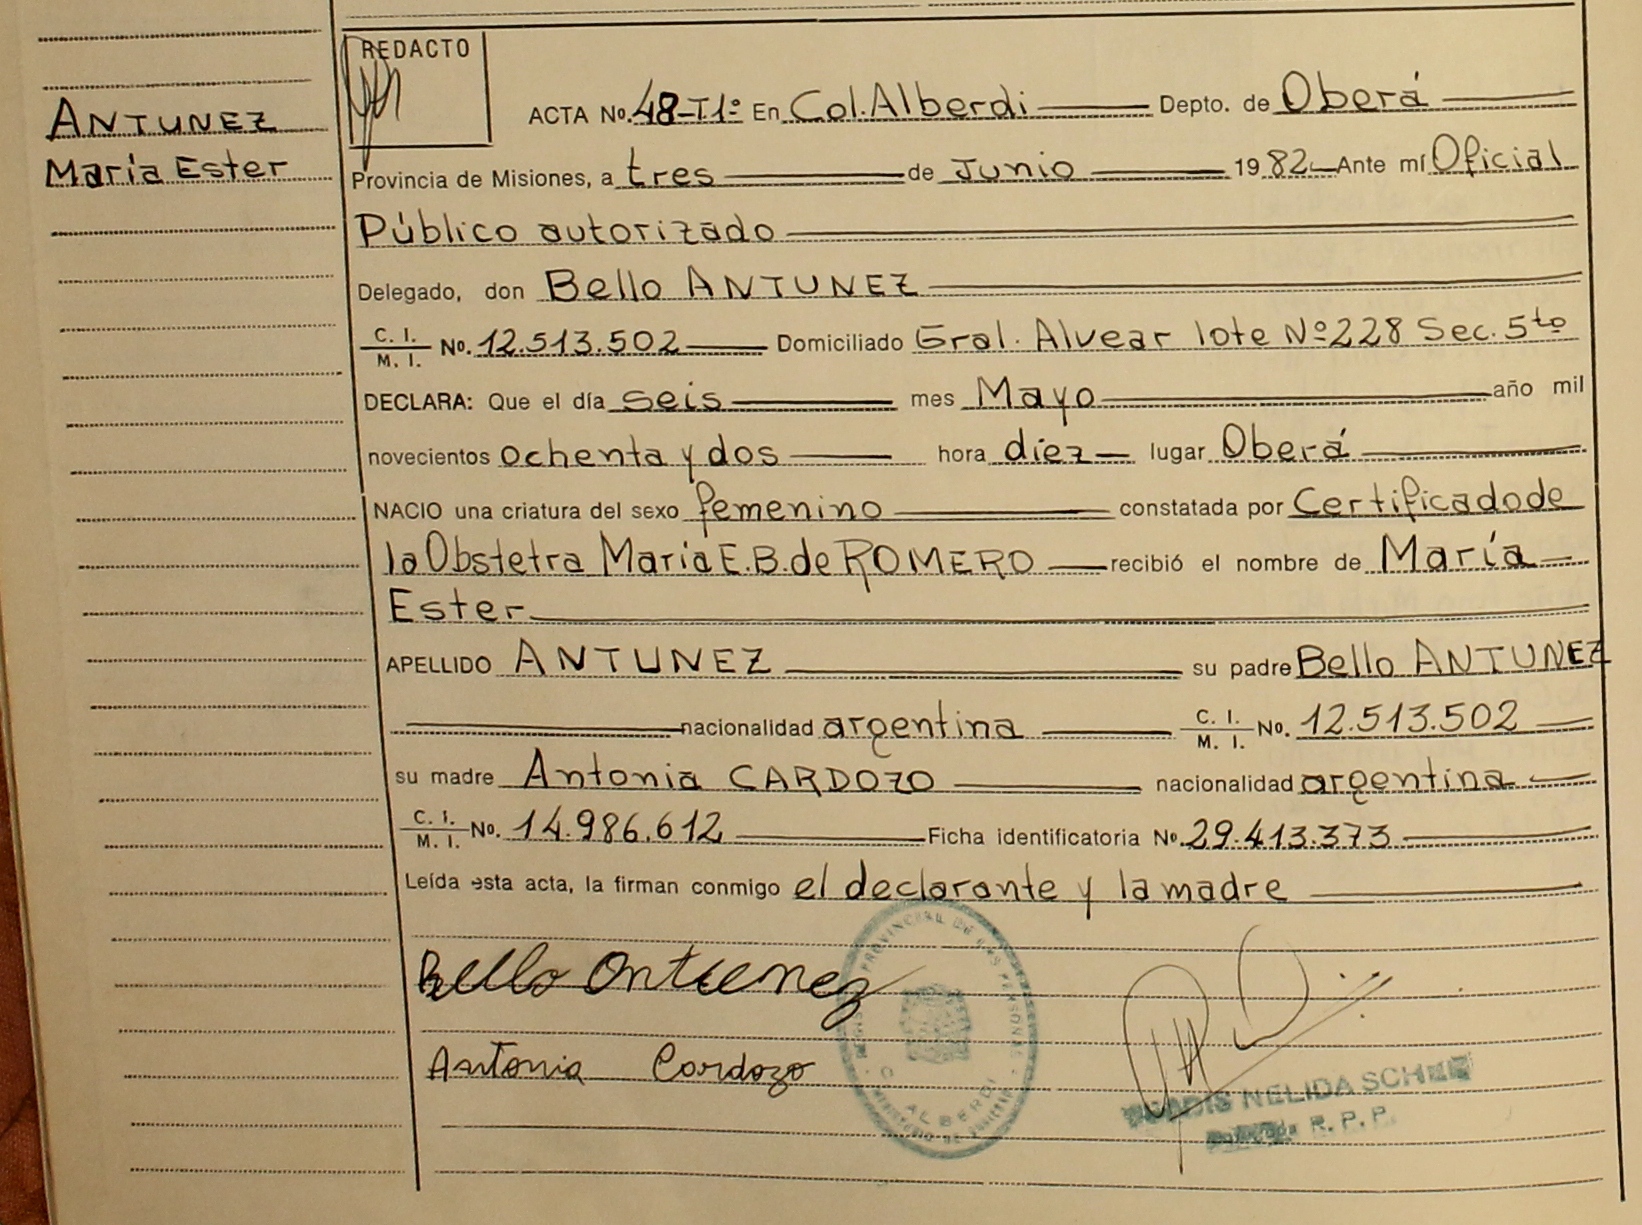 ANTUNEZ
María Ester
REDACTO
ACTA No. 48-T1º En Col. Alberdi Depto. de Oberá
Provincia de Misiones, a tres de Junio 1982 Ante mí Oficial
Público autorizado
Delegado, don Bello ANTUNEZ
C. I.
M. I. No. 12.513.502 Domiciliado Gral. Alvear lote Nº228 Sec. 5to
DECLARA: Que el día seis mes Mayo año mil
novecientos ochenta y dos hora diez lugar Oberá
NACIO una criatura del sexo femenino constatada por Certificado de
la Obstetra María E. B. de ROMERO recibió el nombre de María
Ester
APELLIDO ANTUNEZ su padre Bello ANTUNEZ
nacionalidad argentina C. I.
M. I. No. 12.513.502
su madre Antonia CARDOZO nacionalidad argentina
C. I.
M. I. No. 14.986.612 Ficha identificatoria No. 29.413.373
Leída esta acta, la firman conmigo el declarante y la madre
Bello Antunez
Antonia Cardozo
PROVINCIAL DE LAS PERSONAS
ALBERDI
NELIDA SCH
R. P. P.